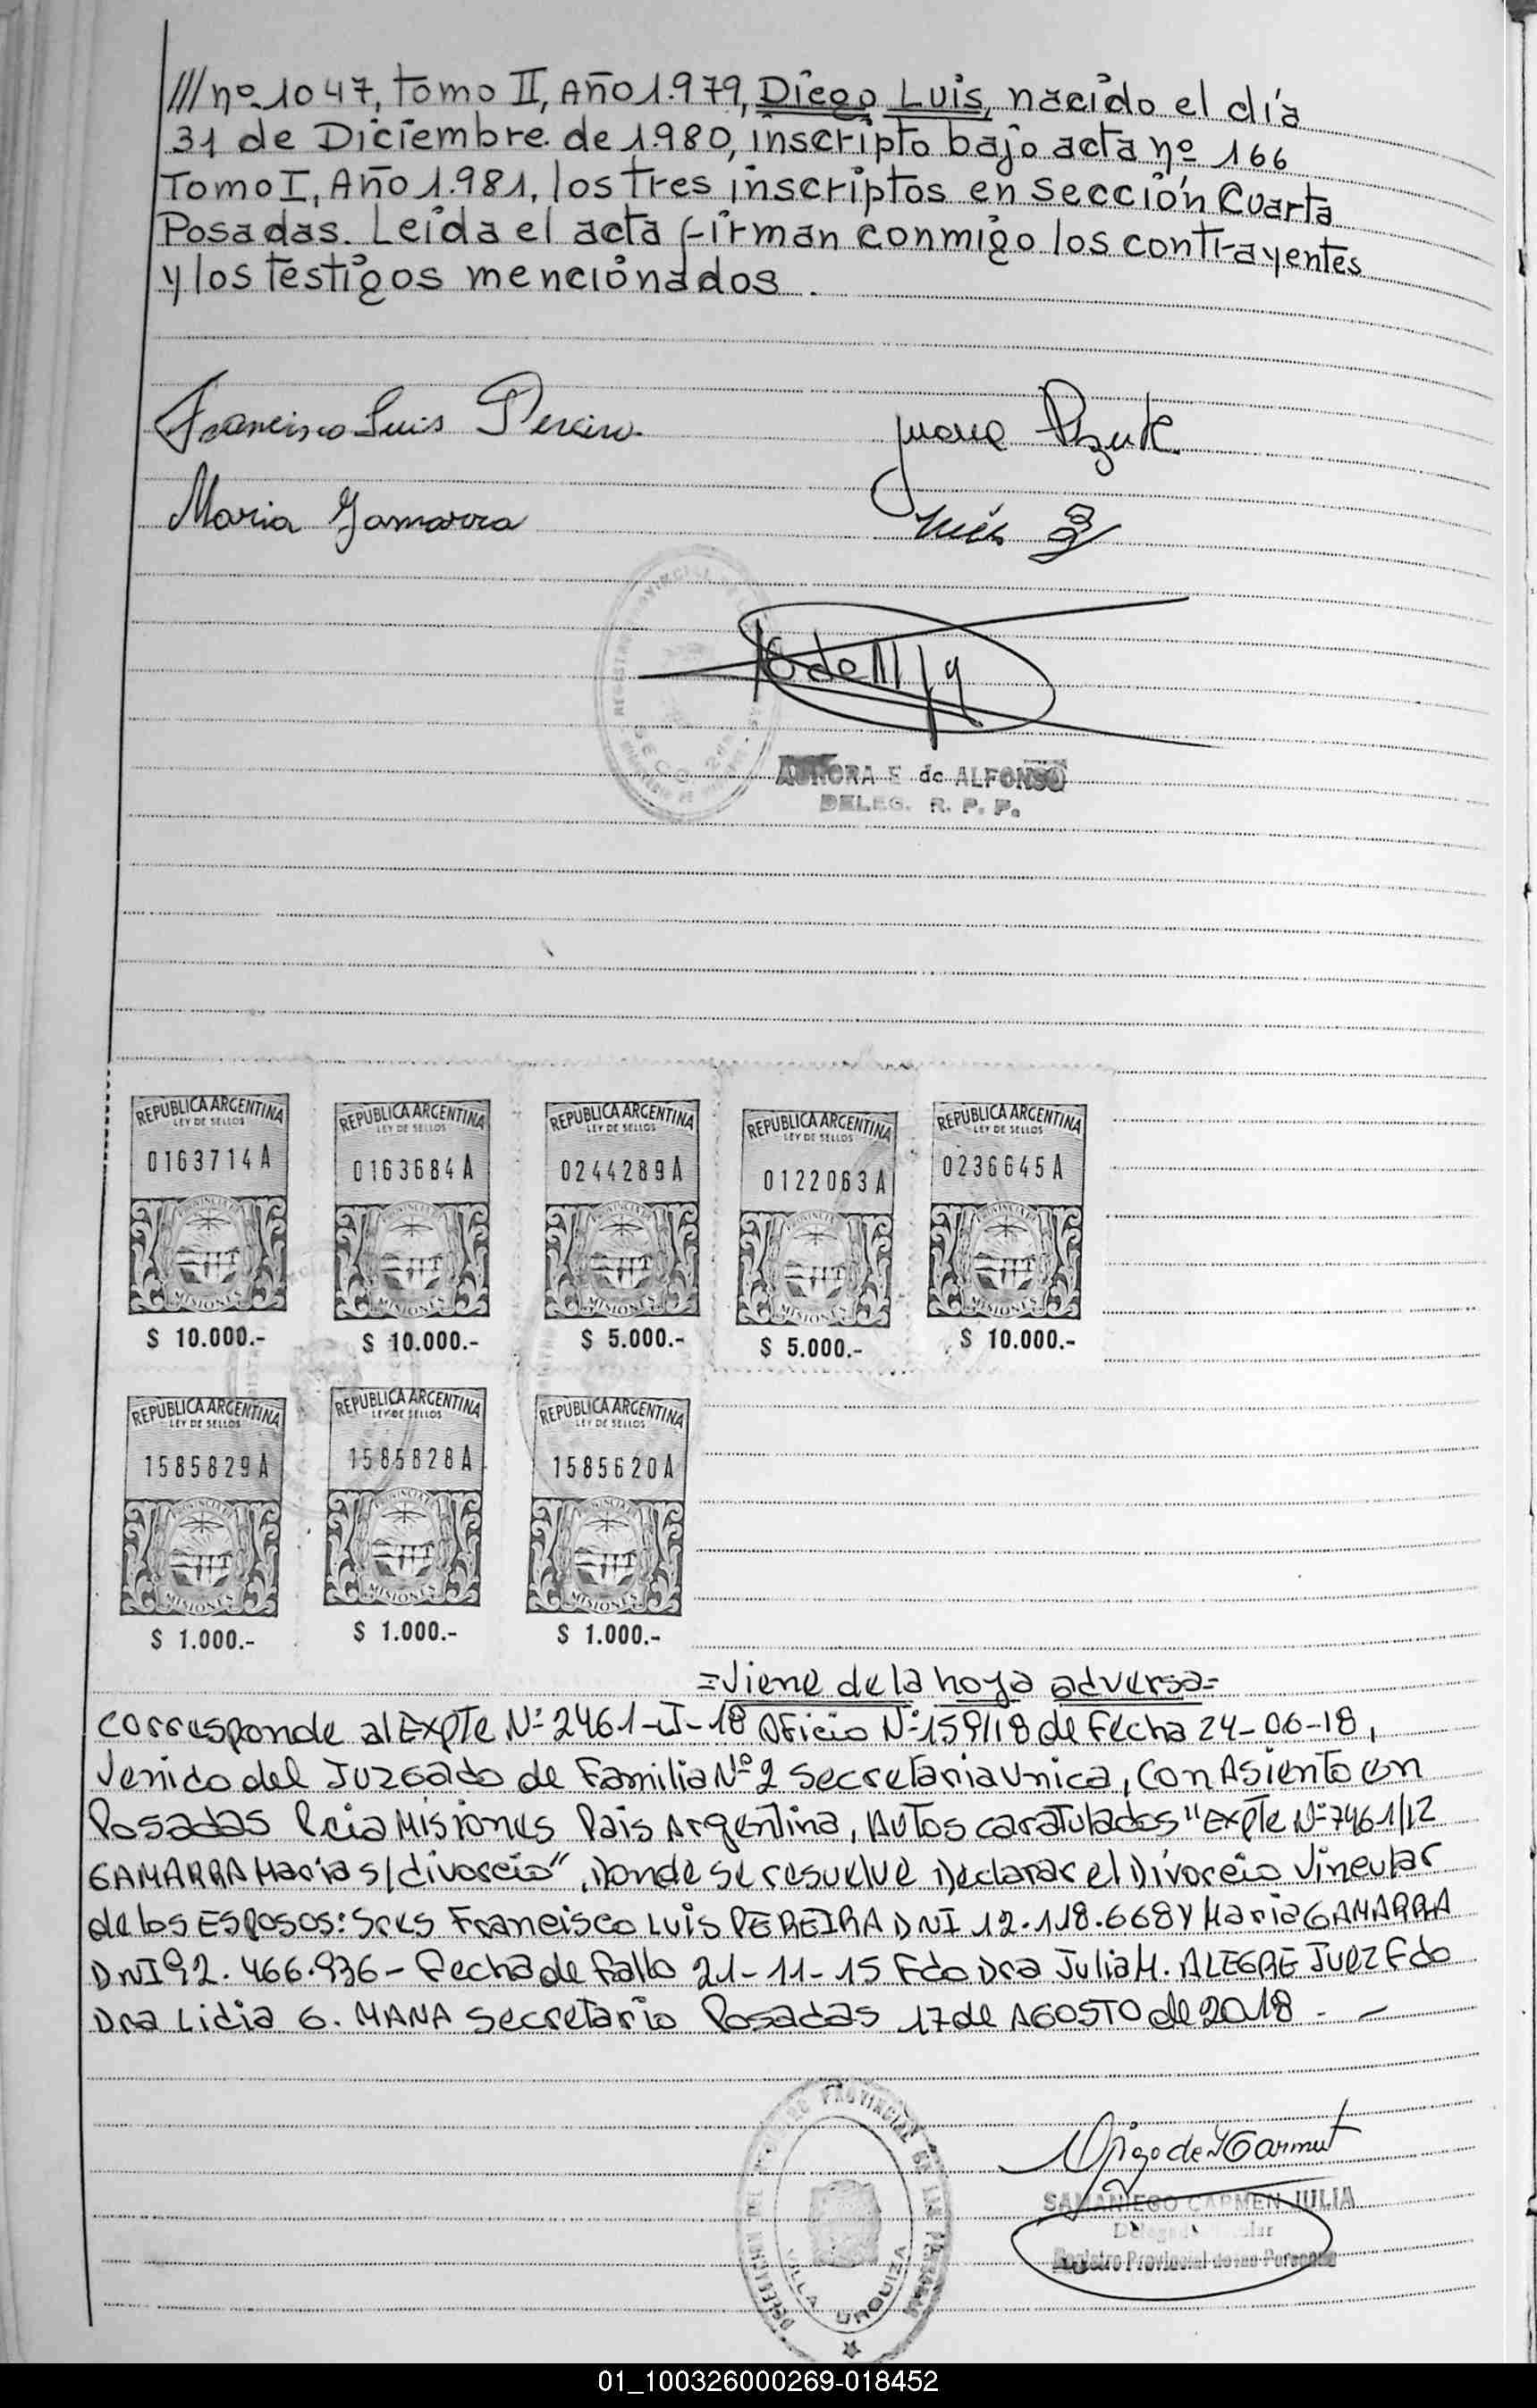 /// nº 1047, tomo II, Año 1.979, Diego Luis, nacido el día
31 de Diciembre de 1.980, inscripto bajo acta nº 166
Tomo I, Año 1.981, los tres inscriptos en Sección Cuarta
Posadas. Leída el acta firman conmigo los contrayentes
y los testigos mencionados.
Francisco Luis Pereira
Maria Gamarra
AURORA E de ALFONSO
DELEG. R. P. P.
REPUBLICA ARGENTINA REPUBLICA ARGENTINA REPUBLICA ARGENTINA REPUBLICA ARGENTINA REPUBLICA ARGENTINA
LEY DE SELLOS LEY DE SELLOS LEY DE SELLOS LEY DE SELLOS LEY DE SELLOS
0163714A 0163684A 0244289A 0122063A 0236645A
PROVINCIA PROVINCIA PROVINCIA PROVINCIA PROVINCIA
MISIONES MISIONES MISIONES MISIONES MISIONES
$ 10.000.- $ 10.000.- $ 5.000.- $ 5.000.- $ 10.000.-
REPUBLICA ARGENTINA REPUBLICA ARGENTINA REPUBLICA ARGENTINA
LEY DE SELLOS LEY DE SELLOS LEY DE SELLOS
1585829A 1585828A 1585620A
PROVINCIA PROVINCIA PROVINCIA
MISIONES MISIONES MISIONES
$ 1.000.- $ 1.000.- $ 1.000.-
=Viene de la hoja adversa=
Corresponde al Expte Nº 2461-J-18 Oficio Nº 159/18 de Fecha 24-06-18,
Venido del Juzgado de Familia Nº 2 Secretaria Unica, Con Asiento en
Posadas Pcia Misiones Pais Argentina, Autos caratulados "Expte Nº 7461/12
GAMARRA Maria s/divorcio", Donde se resuelve Declarar el Divorcio Vincular
de los Esposos: Sres Francisco Luis PEREIRA DNI 12.118.668 y Maria GAMARRA
DNI 92.466.936- Fecha de fallo 21-11-15 Fdo Dra Julia M. ALEGRE Juez Fdo
Dra Lidia G. MANA Secretario Posadas 17 de AGOSTO de 2018 . -
VILLA URQUIZA
SAMANIEGO CARMEN JULIA
Registro Provincial de las Personas
01_100326000269-018452